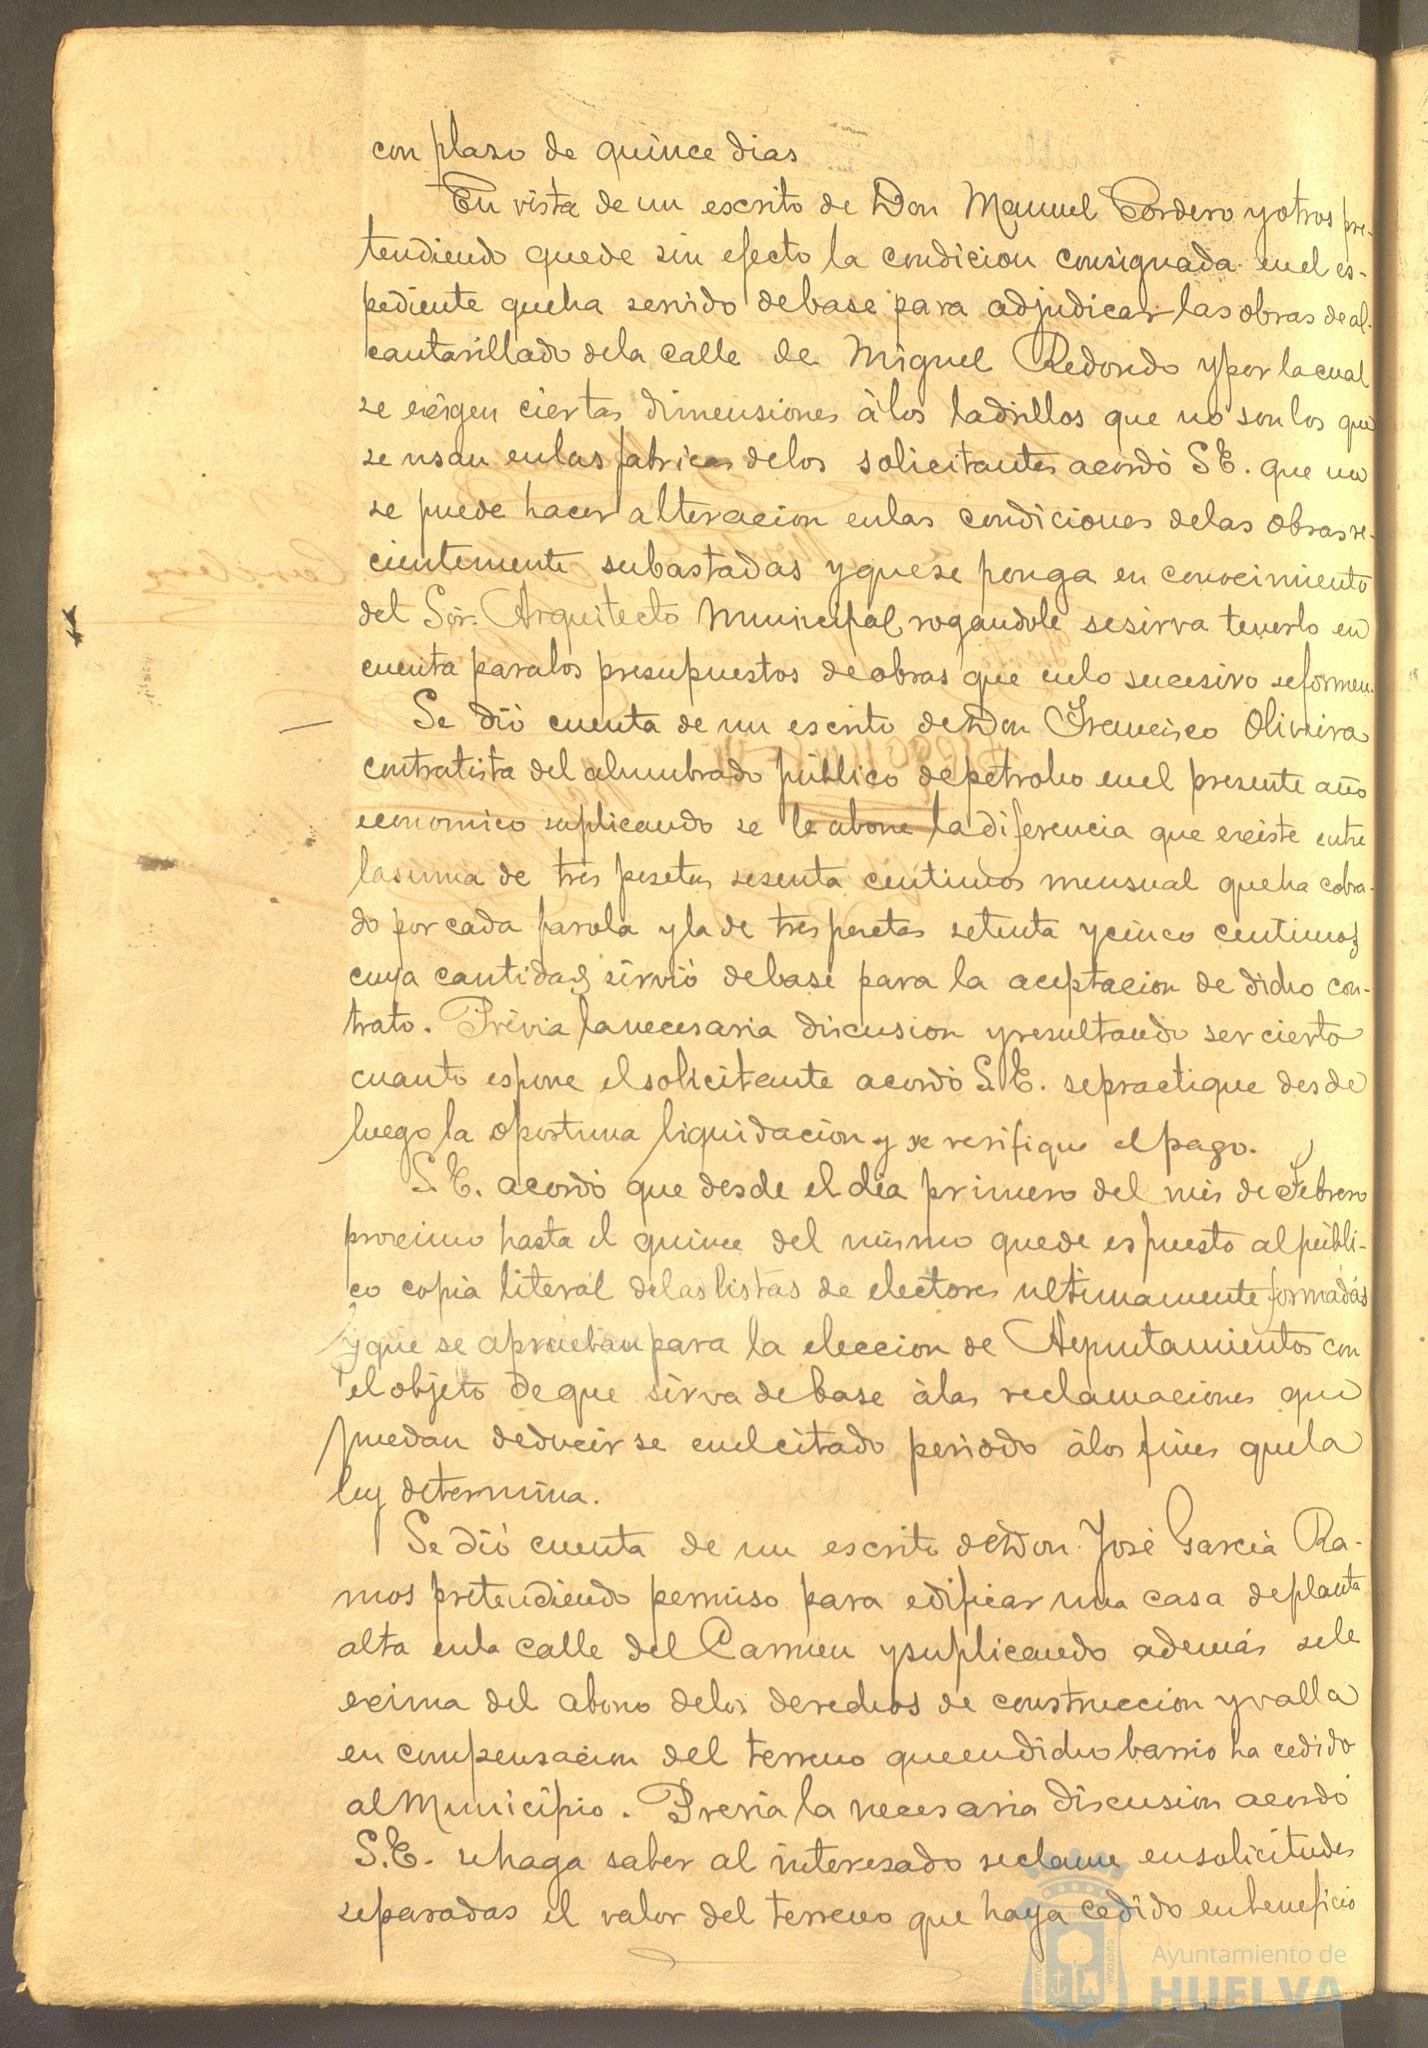 con plazo de quince dias
En vista de un escrito de Don Manuel Cordero y otros pre-
tendiendo quede sin efecto la condicion consignada en el es-
pediente que ha servido de base para adjudicar las obras de al-
cantarillado de la calle de Miguel Redondo y por la cual
se exigen ciertas dimensiones á los ladrillos que no son los que
se usan en las fabricas de los solicitantes acordó S.E. que no
se puede hacer alteracion en las condiciones de las obras re-
cientemente subastadas y que se ponga en conocimiento
del Sor. Arquitecto Municipal, rogandole se sirva tenerlo en
cuenta para los presupuestos de obras que en lo sucesivo se formen.
Se dió cuenta de un escrito de Don Francisco Oliveira
contratista del alumbrado público de petroleo en el presente año
economico suplicando se le abone la diferencia que existe entre
la suma de tres pesetas sesenta centimos mensual que ha cobra-
do por cada farola y la de tres pesetas setenta y cinco centimos
cuya cantidad sirvió de base para la aceptacion de dicho con-
trato. Prévia la necesaria discusion y resultando ser cierto
cuanto espone el solicitante acordó S.E. se practique desde
luego la oportuna liquidacion y se verifique el pago.
S.E. acordó que desde el dia primero del mes de Febrero
proximo hasta el quince del mismo quede espuesto al públi-
co copia literal de las listas de electores ultimamente formadas
y que se aprueban para la eleccion de Ayuntamientos con
el objeto de que sirva de base á las reclamaciones que
puedan deducirse en el citado periodo á los fines que la
ley determina.
Se dió cuenta de un escrito de Don José Garcia Ra-
mos pretendiendo permiso para edificar una casa de planta
alta en la calle del Carmen y suplicando además se le
exima del abono de los derechos de construccion y valla
en compensacion del terreno que en dicho barrio ha cedido
al Municipio. Previa la necesaria discusion acordó
S.E. se haga saber al interesado reclame en solicitudes
separadas el valor del terreno que haya cedido en beneficio
Ayuntamiento de
HUELVA